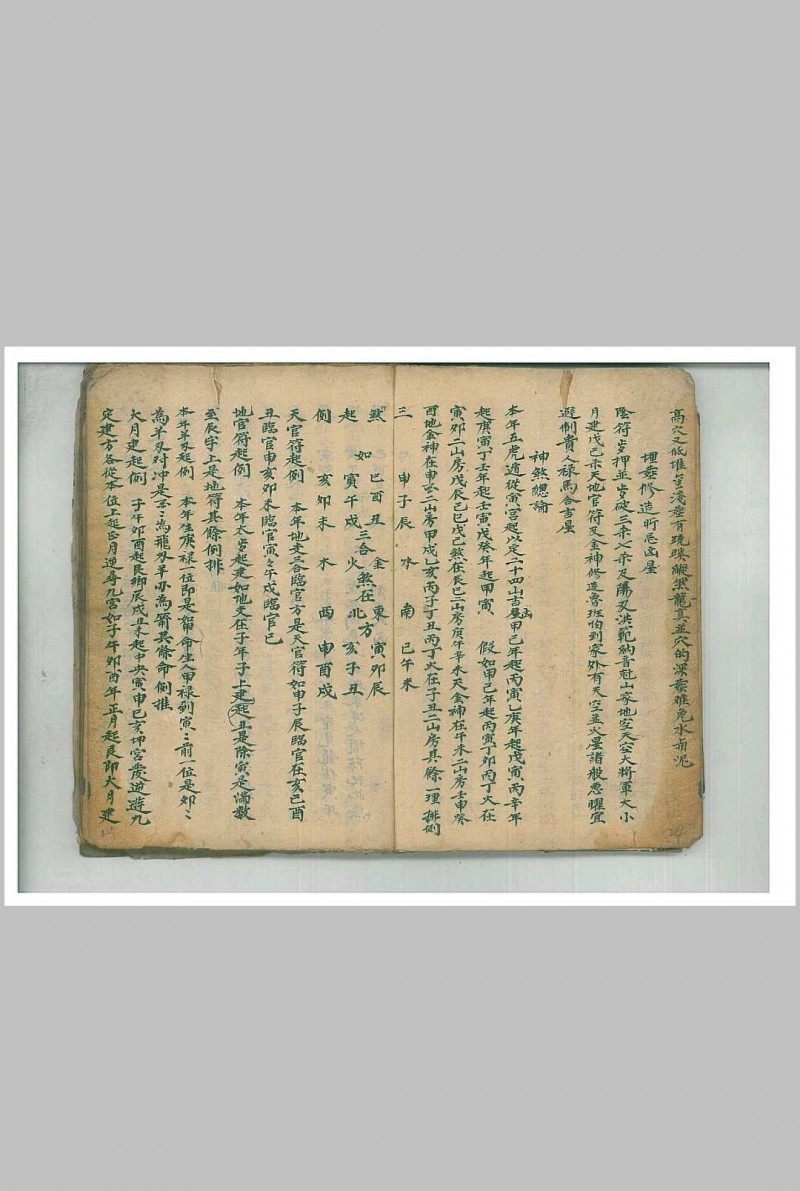 高穴又低堆 淺葬有疏 縱然龍真並穴的深葬難免水與泥
埋葬修造所忌凶星
陰符歲押並歲破三杀六杀及陽刃洪範納音尅山家地空天空大將軍大小
月建戊己杀天地官符又金神修造魯班怕到家外有天空並火星諸般惡曜宜
避制貴人禄馬合吉星
神煞總論
本年五虎遁從寅宮起以定二十四山吉凶星甲己年起丙寅乙庚年起戊寅丙辛年
起庚寅丁壬年起壬寅戊癸年起甲寅 假如甲己年起丙寅丁卯丙丁火在
寅卯二山房戊辰己巳戊己煞在辰巳二山房庚午辛未天金神在午未二山房壬申癸
酉地金神在申 二山房甲戌乙亥丙子丁丑丙丁火在子丑二山房其餘一理排例
三 申子辰 水 南 巳午未
煞 如 巳酉丑 金 三合煞在 東 寅卯辰
起 寅午戌 火 北方 亥子丑
例 亥卯未 木 西 申酉戌
天官符起例 本年地支三合臨官方是天官符如申子辰臨官在亥巳酉
丑臨官申亥卯未臨官寅々午戌臨官巳
地官符起例 本年太歲起建如地支在子年子上建起丑是除寅是滿數
至辰字上是地符其餘例排
本年羊刃起例 本年生庚禄一位即是如甲命生人甲禄到寅〻前一位是卯〻
為羊刃对冲是 〻為飛刃羊刃為箭其餘命例推
火月建起例 子午卯酉起艮鄉辰戌丑未起中央寅申巳亥坤宮發逆遊九
定建方各從本位上起正月逆尋九宮如子午卯酉年正月起艮即火月建